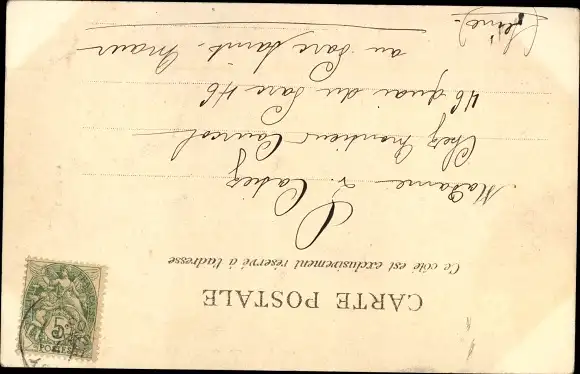 CARTE POSTALE
Ce côté est exclusivement réservé à l'adresse
Madame L. Cadiez
Chez Monsieur
46 quai du Parc 46
au Parc Saint-Maur
(Seine)
5c